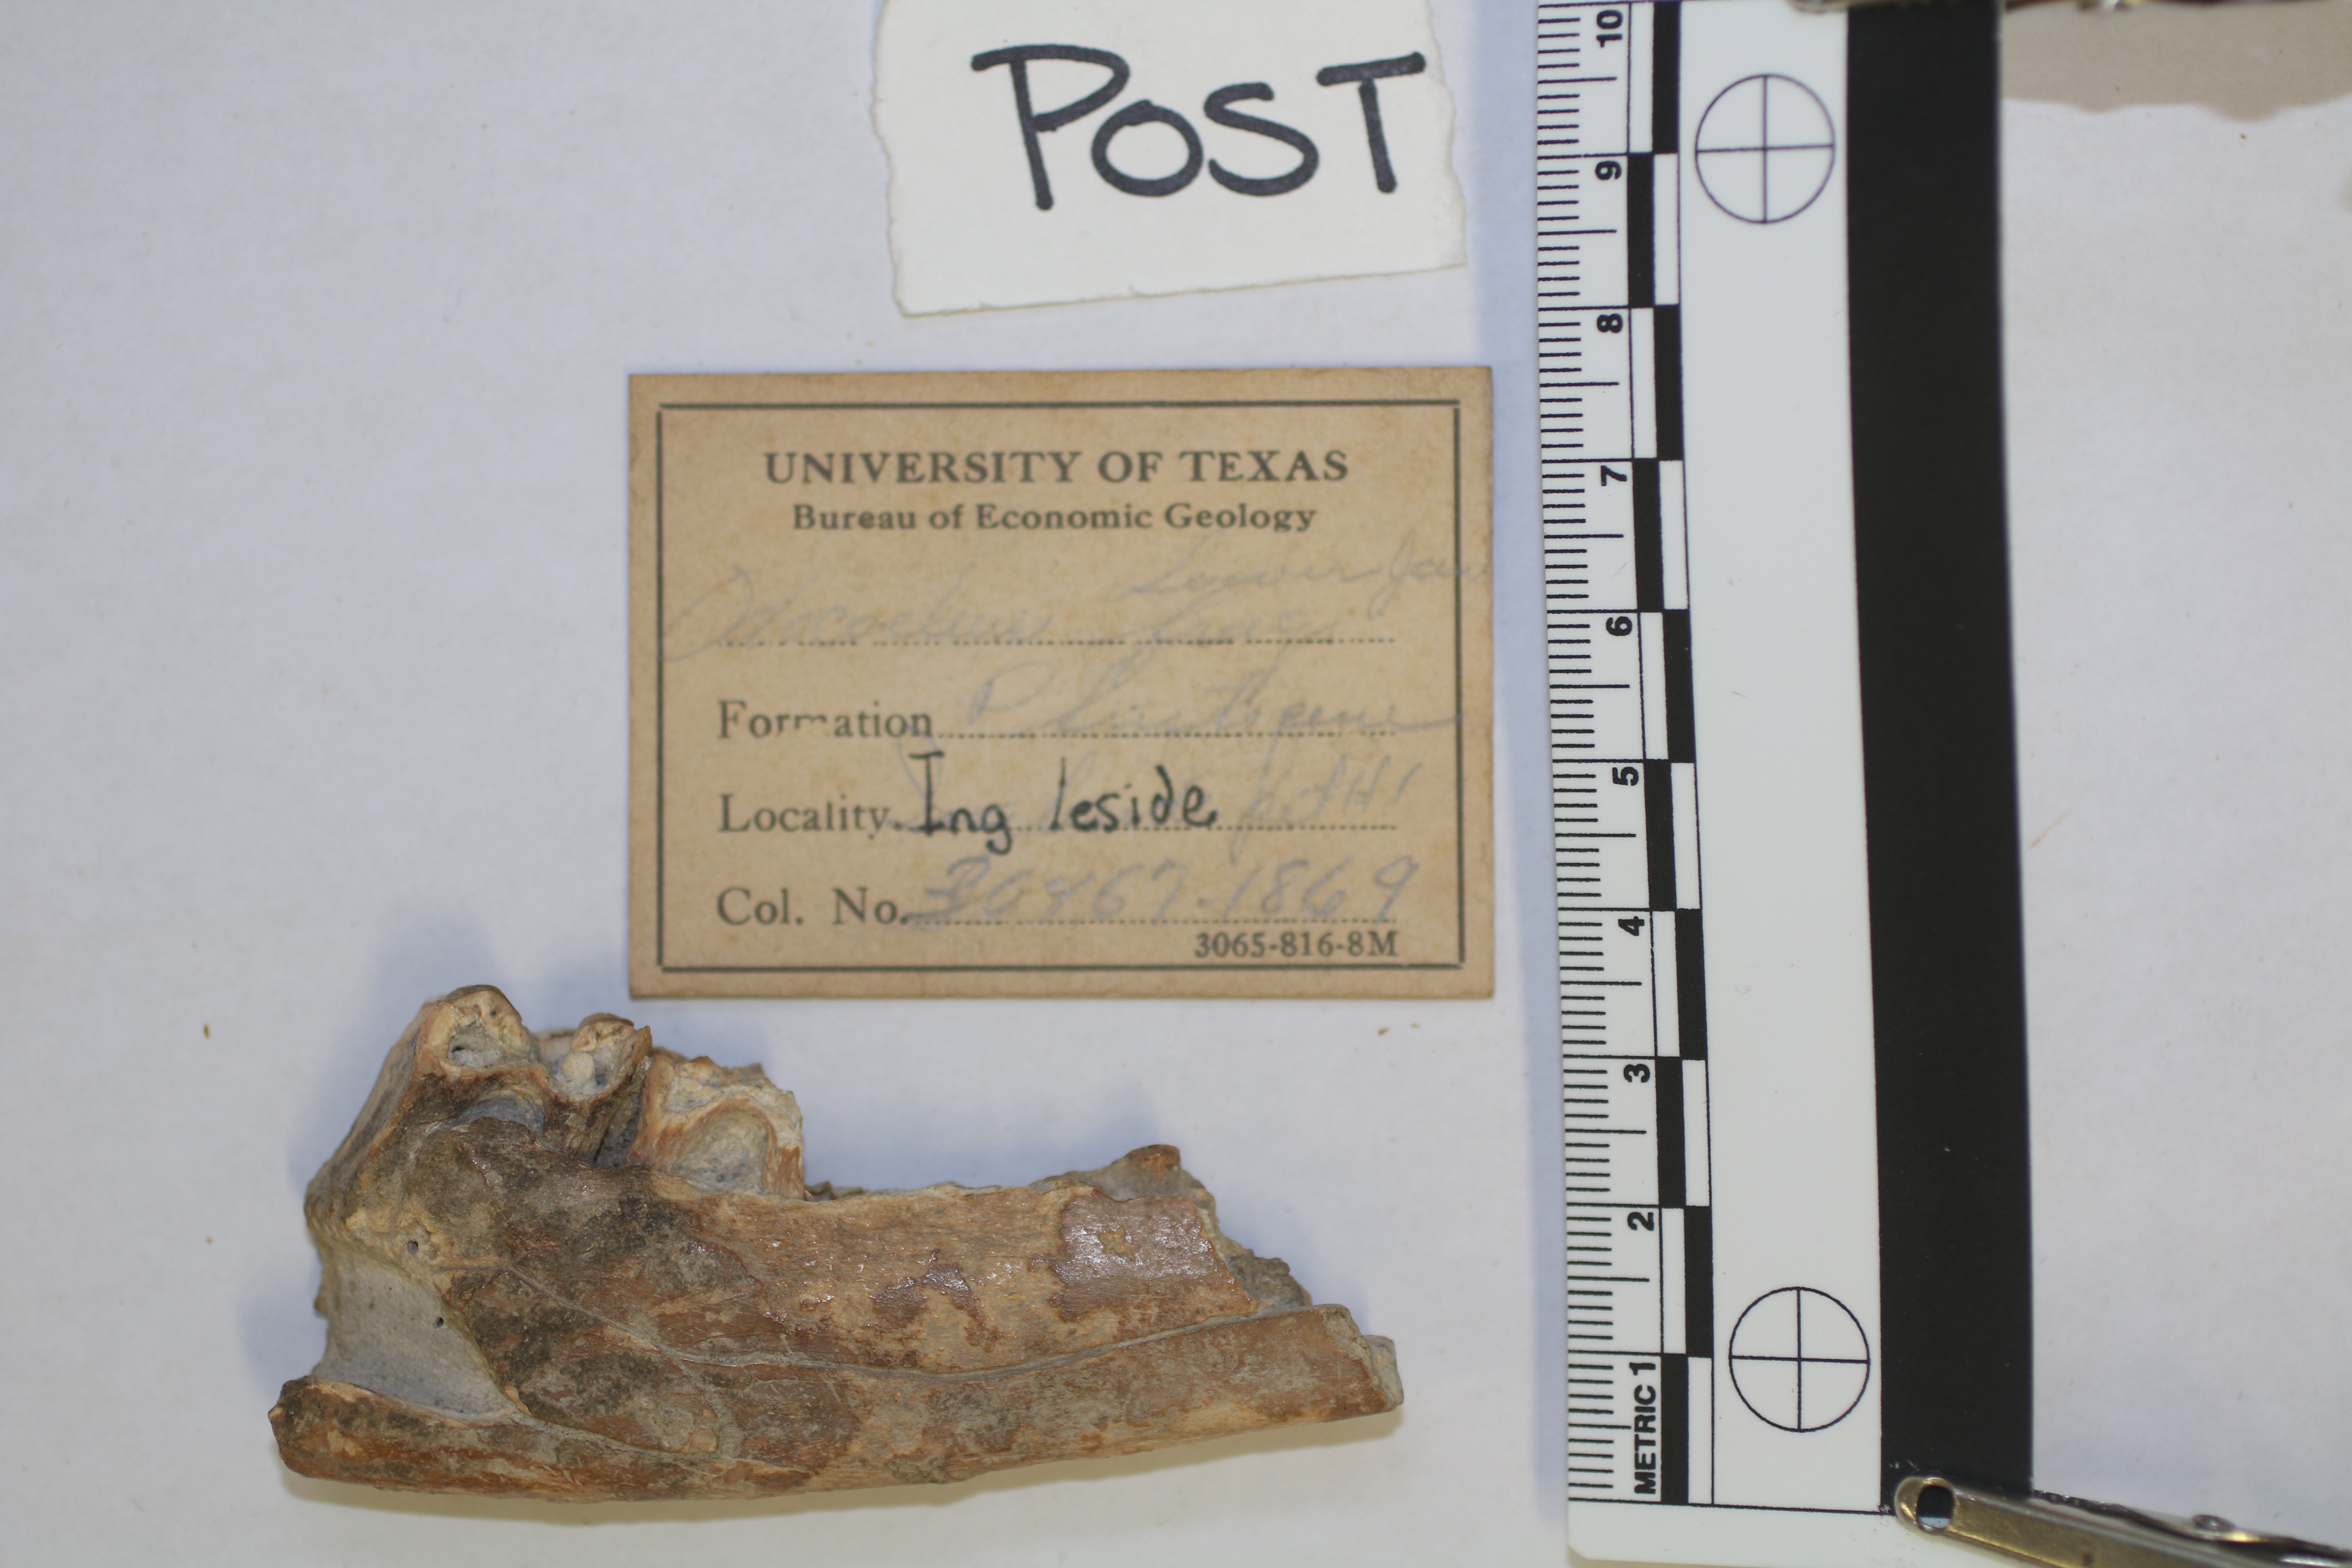 POST
UNIVERSITY OF TEXAS
Bureau of Economic Geology
Lower Jaw
Odocoileus
Formation Pleistocene
Locality Ing leside
Col. No. 30967-1869
3065-816-8M
10
9
8
7
6
5
4
3
2
METRIC 1